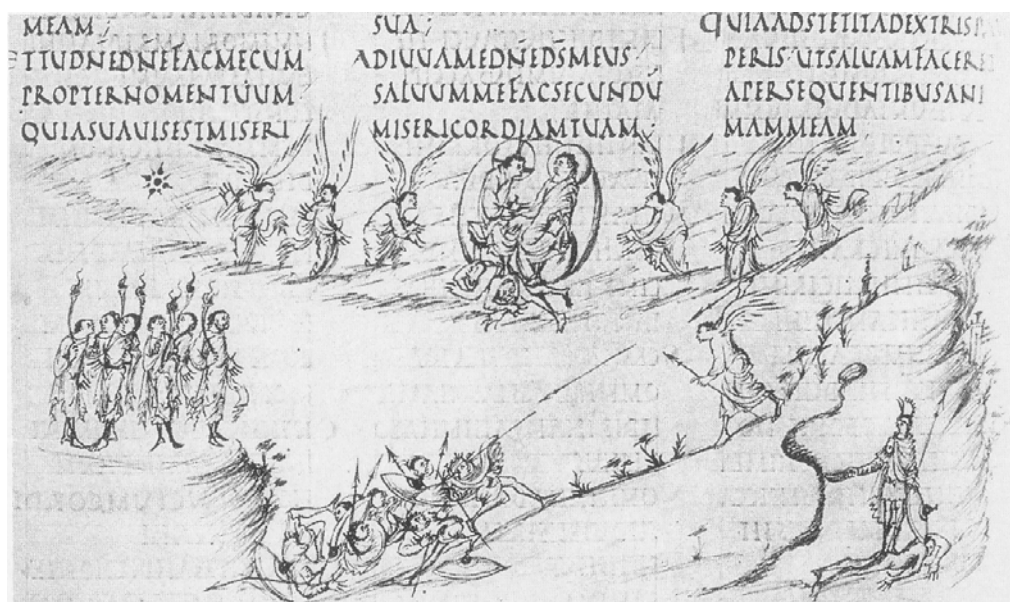 MEAM;
ETTUDNEDNEFACMECUM
PROPTERNOMENTUUM
QUIASUAUISESTMISERI
SUA;
ADIUUAMEDNEDSMEUS;
SALUUMMEFACSECUNDU
MISERICORDIAMTUAM;
QUIAADSTETITADEXTRISPAU
PERIS·UTSALUAMFACERET
APERSEQUENTIBUSANI
MAMMEAM